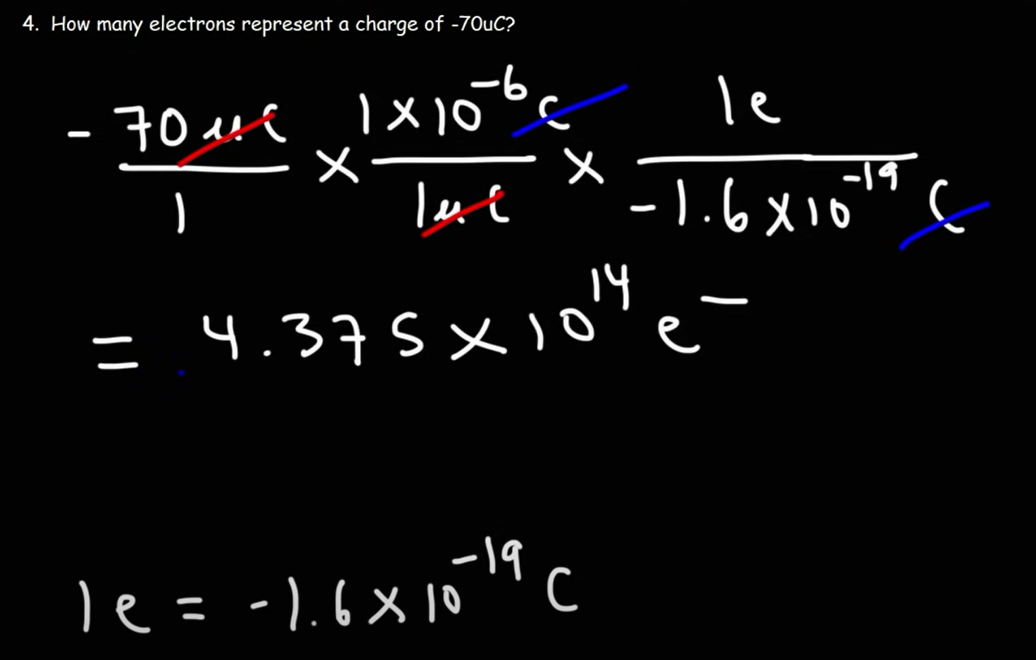 4. How many electrons represent a charge of -70uC?
- 70 μC / 1 × 1 × 10^-6 C / 1 μC × 1e / -1.6 × 10^-19 C
= 4.375 × 10^14 e^-
1e = -1.6 × 10^-19 C